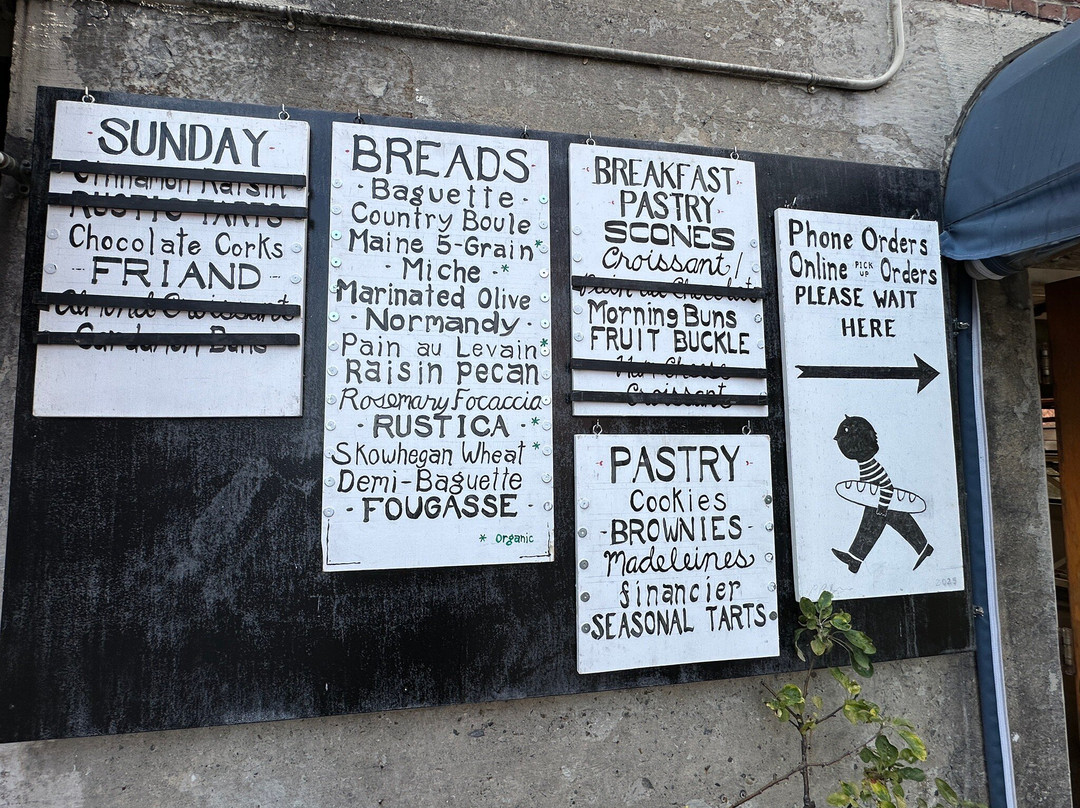 SUNDAY
Cinnamon Raisin
RUSTIC TARTS
Chocolate Corks
- FRIAND -
Almond Croissant
Cardamon Buns
BREADS
· Baguette ·
Country Boule
Maine 5-Grain*
· Miche · *
Marinated Olive
· Normandy ·
Pain au Levain*
Raisin Pecan
Rosemary Focaccia
· RUSTICA · *
Skowhegan Wheat *
Demi-Baguette
· FOUGASSE ·
* Organic
BREAKFAST
PASTRY
SCONES
Croissant/
Pain au Chocolate
Morning Buns
FRUIT BUCKLE
Ham Cheese
Croissant
PASTRY
Cookies
· BROWNIES ·
Madeleines
financier
SEASONAL TARTS
Phone Orders
Online PICK UP Orders
PLEASE WAIT
HERE